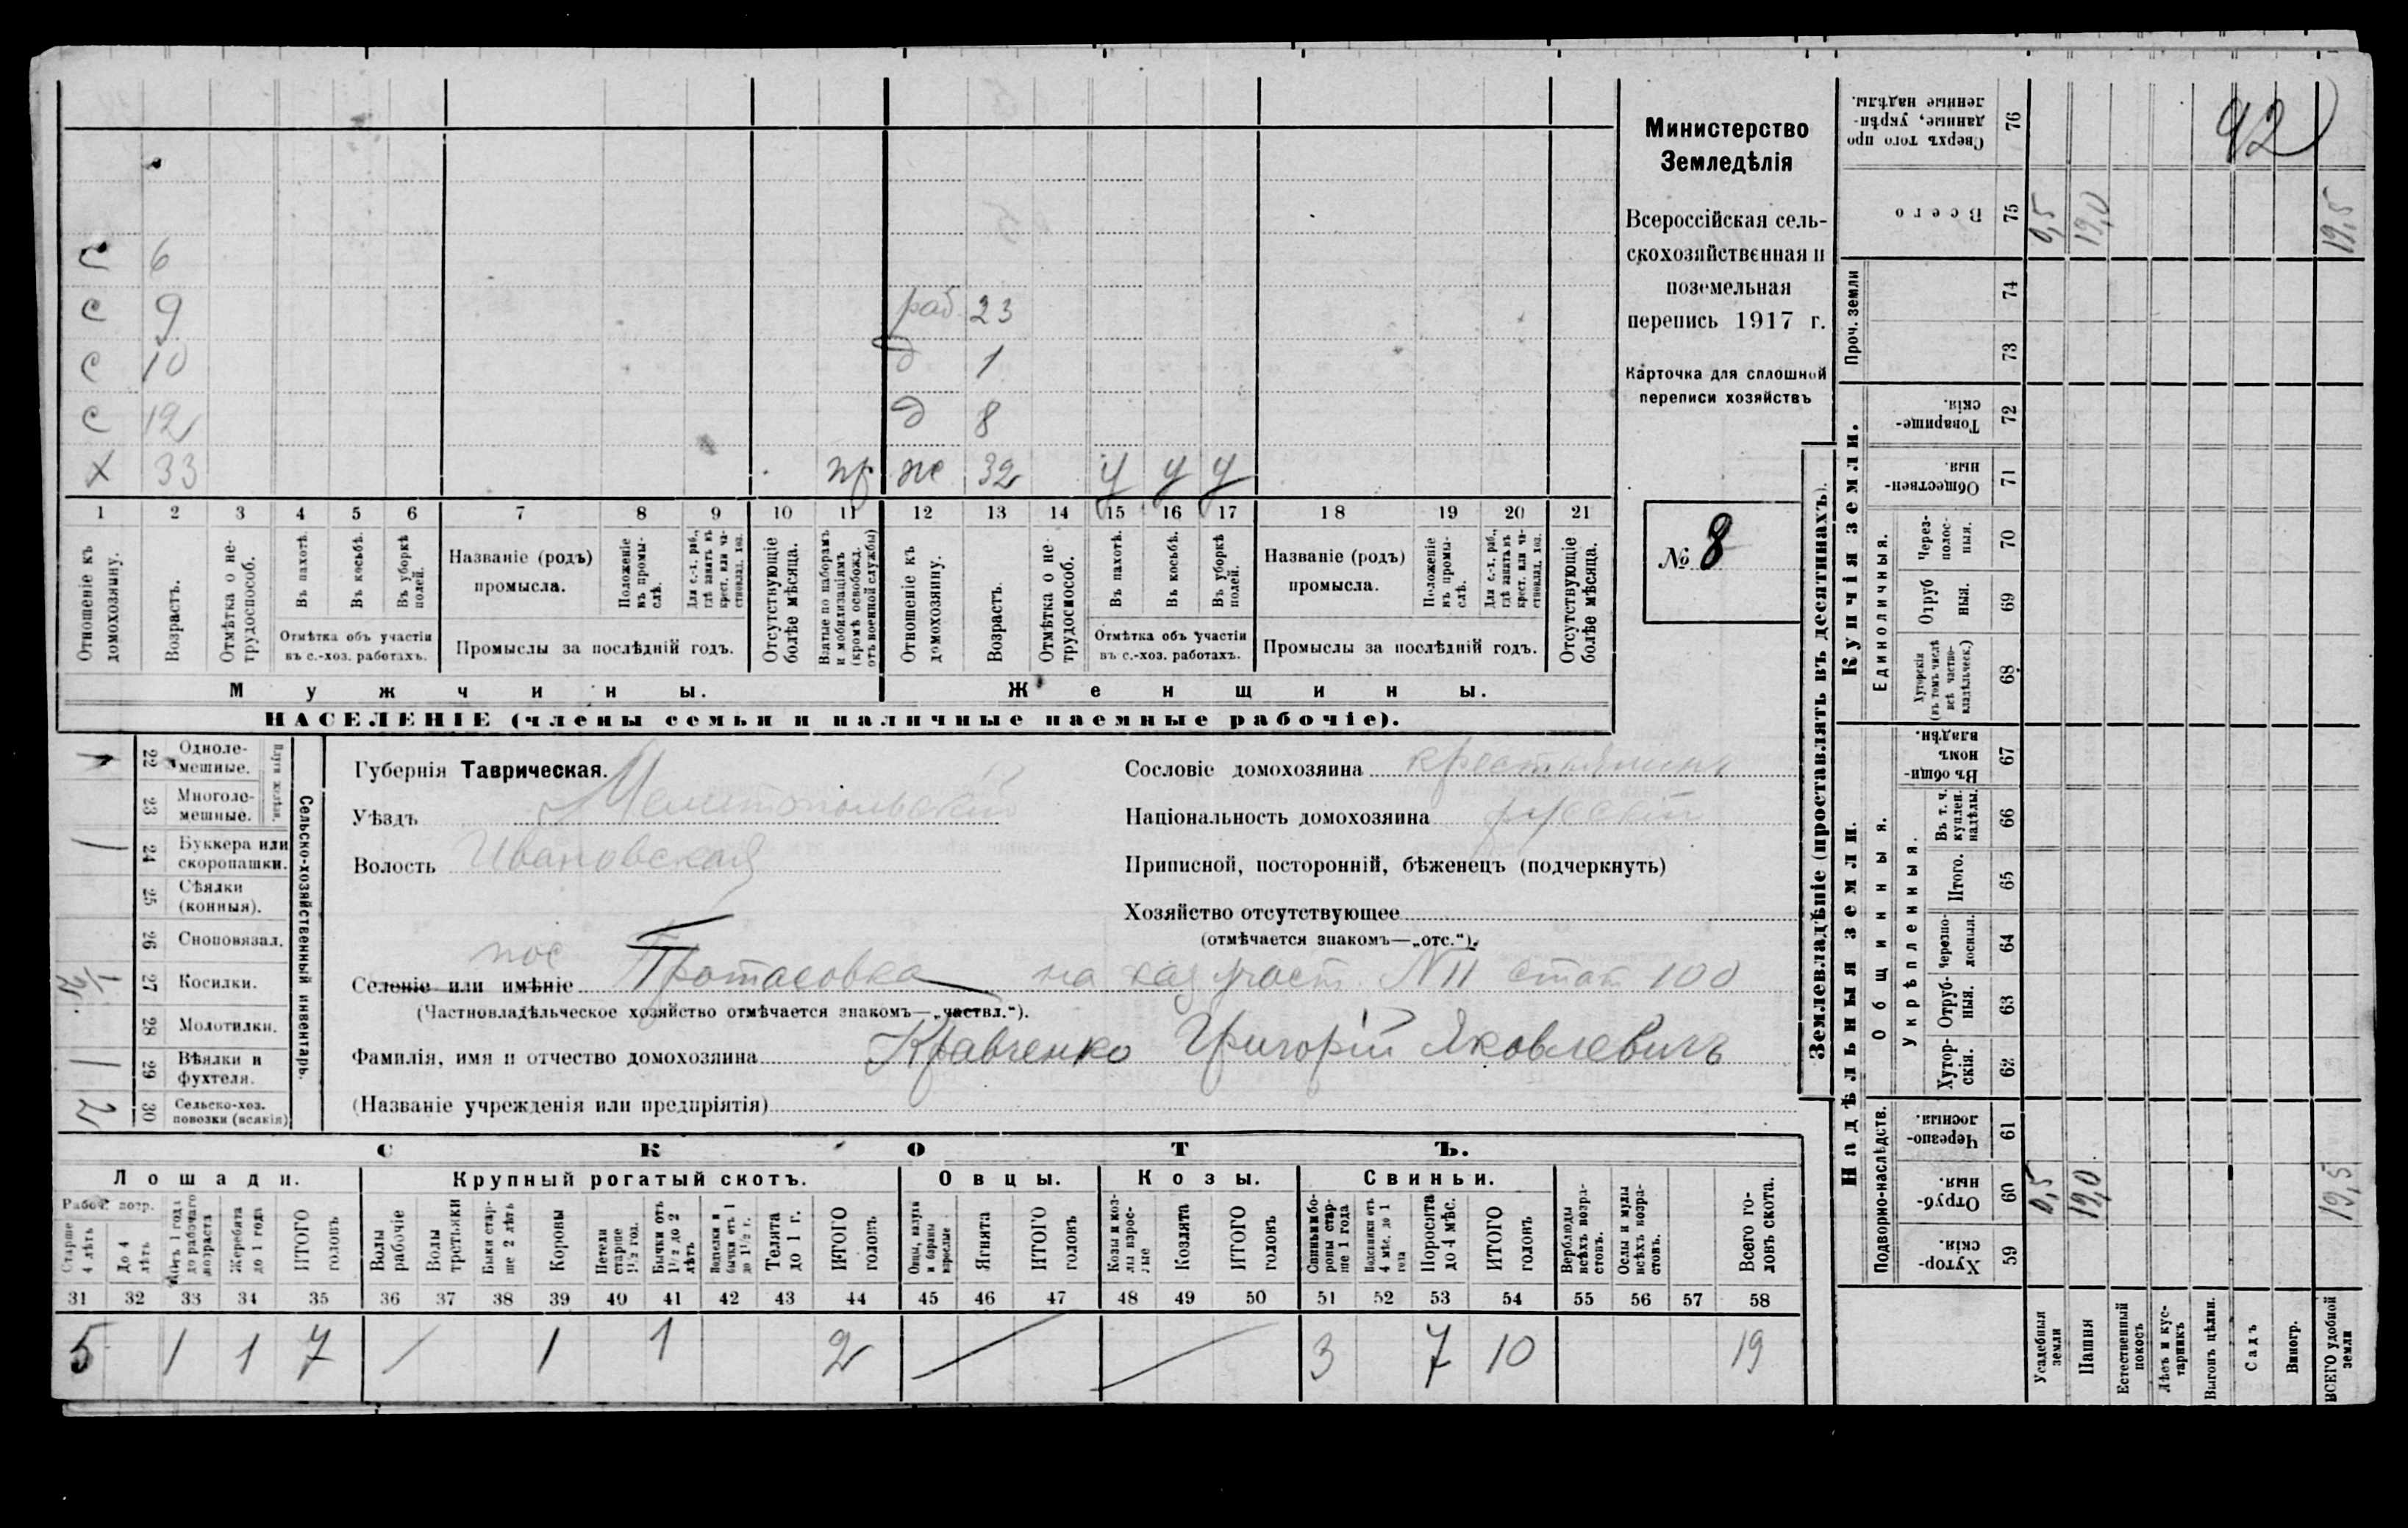 С 6
С 9
раб. 23
С 10
д 1
С 12
д 8
Х 33 пр же 32 у у у
1 2 3 4 5 6 7 8 9 10 11 12 13 14 15 16 17 18 19 20 21
Отношеніе къ домохозяину.
Возрастъ.
Отмѣтка о не-трудоспособ.
Въ пахотѣ.
Въ косьбѣ.
Въ уборкѣ полей.
Отмѣтка объ участіи въ с.-хоз. работахъ.
Названіе (родъ) промысла.
Положеніе въ промы-слѣ.
Для с.-х. раб., гдѣ занятъ въ крест. или ча-стновлад. хоз.
Промыслы за послѣдній годъ.
Отсутствующіе болѣе мѣсяца.
Взятые по наборамъ и мобилизаціямъ (кромѣ освобожд. отъ военной службы)
Отношеніе къ домохозяину.
Возрастъ.
Отмѣтка о не-трудоспособ.
Въ пахотѣ.
Въ косьбѣ.
Въ уборкѣ полей.
Отмѣтка объ участіи въ с.-хоз. работахъ.
Названіе (родъ) промысла.
Положеніе въ промы-слѣ.
Для с.-х. раб., гдѣ занятъ въ крест. или ча-стновлад. хоз.
Промыслы за послѣдній годъ.
Отсутствующіе болѣе мѣсяца.
Мужчины.
Женщины.
НАСЕЛЕНІЕ (члены семьи и наличные наемные рабочіе).
Министерство
Земледѣлія
Всероссійская сель-
скохозяйственная и
поземельная
перепись 1917 г.
Карточка для сплошной
переписи хозяйствъ
№ 8
Сельско-хозяйственный инвентарь.
Плуги желѣзн.
22 Одноле-мешные. 1
23 Многоле-мешные.
24 Буккера или скоропашки. 1
25 Сѣялки (конныя).
26 Сноповязал.
27 Косилки. 1/2
28 Молотилки.
29 Вѣялки и фухтеля. 1
30 Сельско-хоз. повозки (всякія) 2
Губернія Таврическая.
Уѣздъ Мелитопольскій
Волость Ивановская
Сословіе домохозяина крестьянинъ
Національность домохозяина русскій
Приписной, посторонній, бѣженецъ (подчеркнуть)
Хозяйство отсутствующее
(отмѣчается знакомъ—„отс.“).
пос
Селеніе или имѣніе Протасовка на каз участ N 11 стат 100
(Частновладѣльческое хозяйство отмѣчается знакомъ—„частвл.“).
Фамилія, имя и отчество домохозяина Кравченко Григорій Яковлевичъ
(Названіе учрежденія или предпріятія)
СКОТЪ.
Лошади. Крупный рогатый скотъ. Овцы. Козы. Свиньи.
Рабоч. возр.
Старше 4 лѣтъ
До 4 лѣтъ
Отъ 1 года до рабочаго возраста
Жеребята до 1 года
ИТОГО головъ
Волы рабочіе
Волы третьяки
Быки стар-ше 2 лѣтъ
Коровы
Нетели старше 1½ год.
Бычки отъ 1½ до 2 лѣтъ
Подтелки и бычки отъ 1 до 1½ г.
Телята до 1 г.
ИТОГО головъ
Овцы, валухи и бараны взрослые
Ягнята
ИТОГО головъ
Козы и коз-лы взрос-лые
Козлята
ИТОГО головъ
Свиньи и бо-ровы стар-ше 1 года
Подсвинки отъ 4 мѣс. до 1 года
Поросята до 4 мѣс.
ИТОГО головъ
Верблюды всѣхъ возра-стовъ.
Ослы и мулы всѣхъ возра-стовъ.
Всего го-ловъ скота.
31 32 33 34 35 36 37 38 39 40 41 42 43 44 45 46 47 48 49 50 51 52 53 54 55 56 57 58
5 1 1 7 1 1 2 3 7 10 19
Землевладѣніе (проставлять въ десятинахъ).
Надѣльныя земли.
Купчія земли.
Проч. земли
Подворно-наслѣдств.
Общинныя.
Укрѣпленныя.
Единоличныя.
Сверхъ того про-данные, укрѣп-ленные надѣлы. 76
Всего 75 0,5 19,0 19,5
74
73
Товарище-скія. 72
Обществен-ныя. 71
Через-полос-ныя. 70
Отруб-ныя. 69
Хуторскія (въ томъ числѣ всѣ частно-владѣльческ.) 68
Въ общин-номъ владѣн. 67
Въ т. ч. куплен. надѣлы. 66
Итого. 65
Черезпо-лосныя. 64
Отруб-ныя. 63
Хутор-скія. 62
Черезпо-лосныя. 61
Отруб-ныя. 60 0,5 19,0 19,5
Хутор-скія. 59
Усадебныя земли
Пашня
Естественный покосъ
Лѣсъ и кус-тарникъ
Выгонъ цѣлин.
Садъ
Виногр.
ВСЕГО удобной земли
42